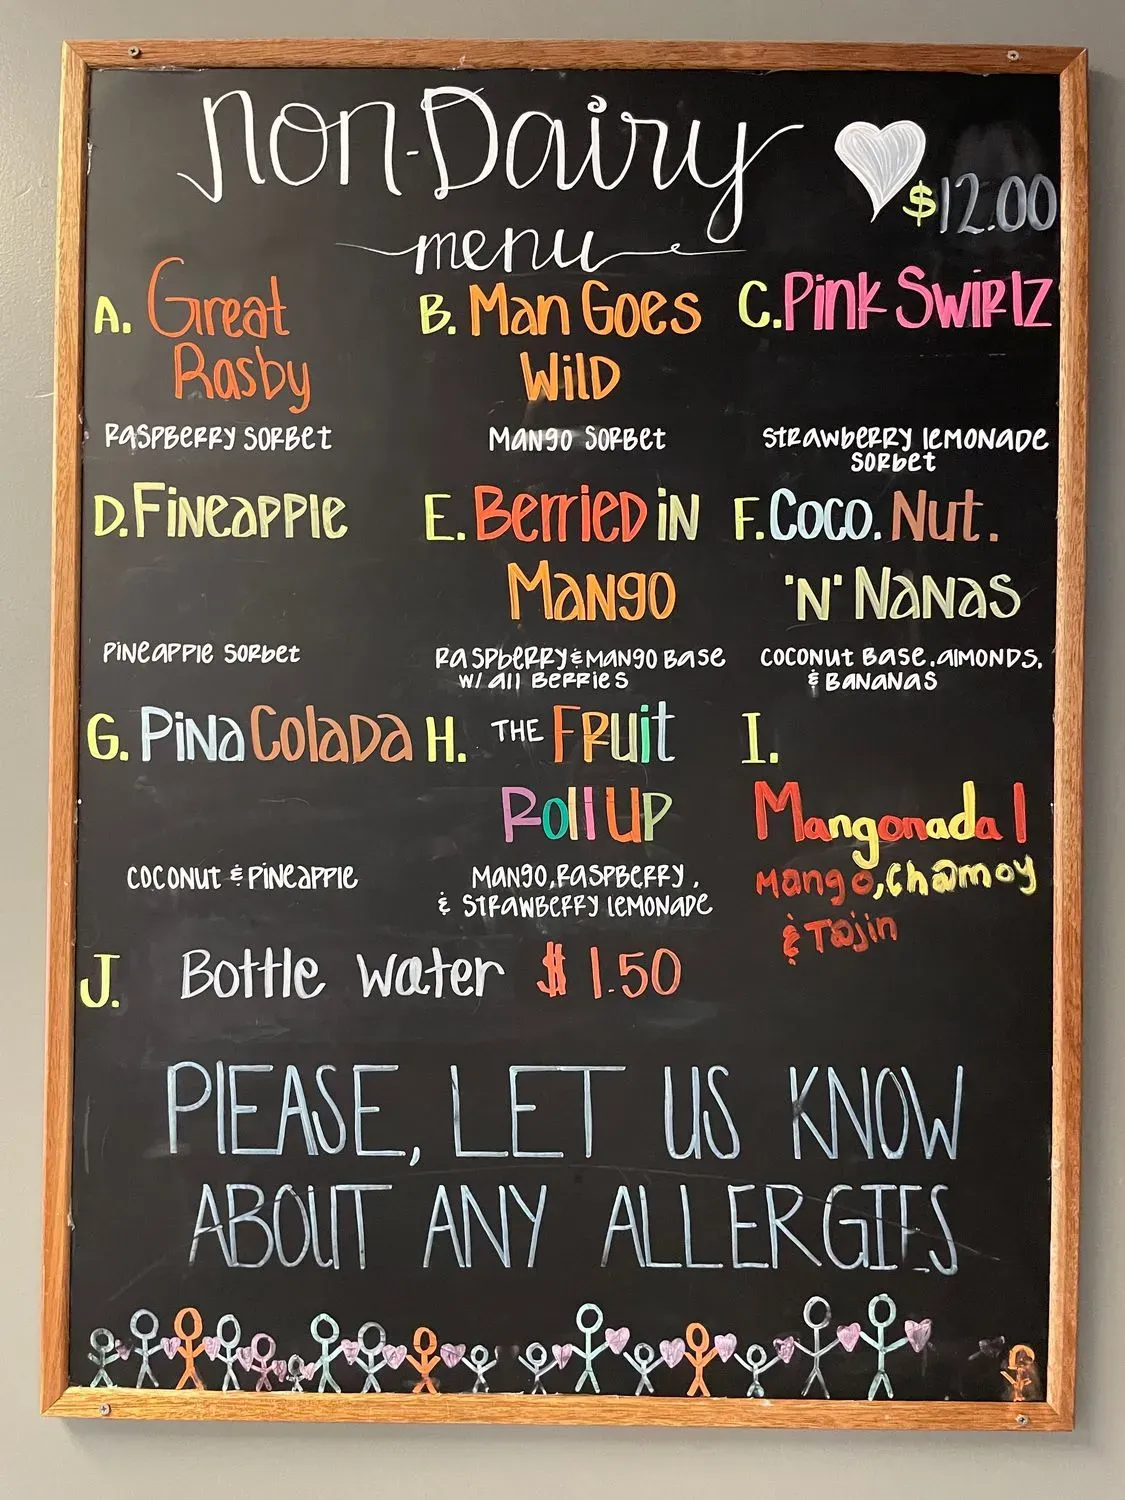 Non-Dairy
$12.00
menu
A. Great
Rasby
RASPBERRY SORBET
B. Man Goes
Wild
Mango Sorbet
C. Pink Swirlz
Strawberry lemonade
Sorbet
D. Fineapple
Pineapple Sorbet
E. Berried in
Mango
Raspberry & Mango Base
w/ all Berries
F. Coco. Nut.
'N' Nanas
Coconut Base, almonds,
& Bananas
G. Pina Colada
Coconut & Pineapple
H. THE Fruit
Roll Up
Mango, Raspberry,
& Strawberry lemonade
I.
Mangonada |
Mango, Chamoy
& Tajin
J. Bottle water $1.50
PLEASE, LET US KNOW
ABOUT ANY ALLERGIES